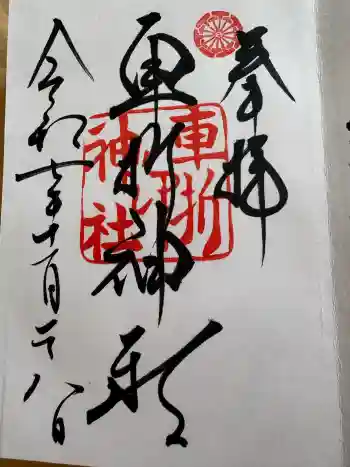 奉拝
車折神社
令和六年十一月二十八日
車折
神社